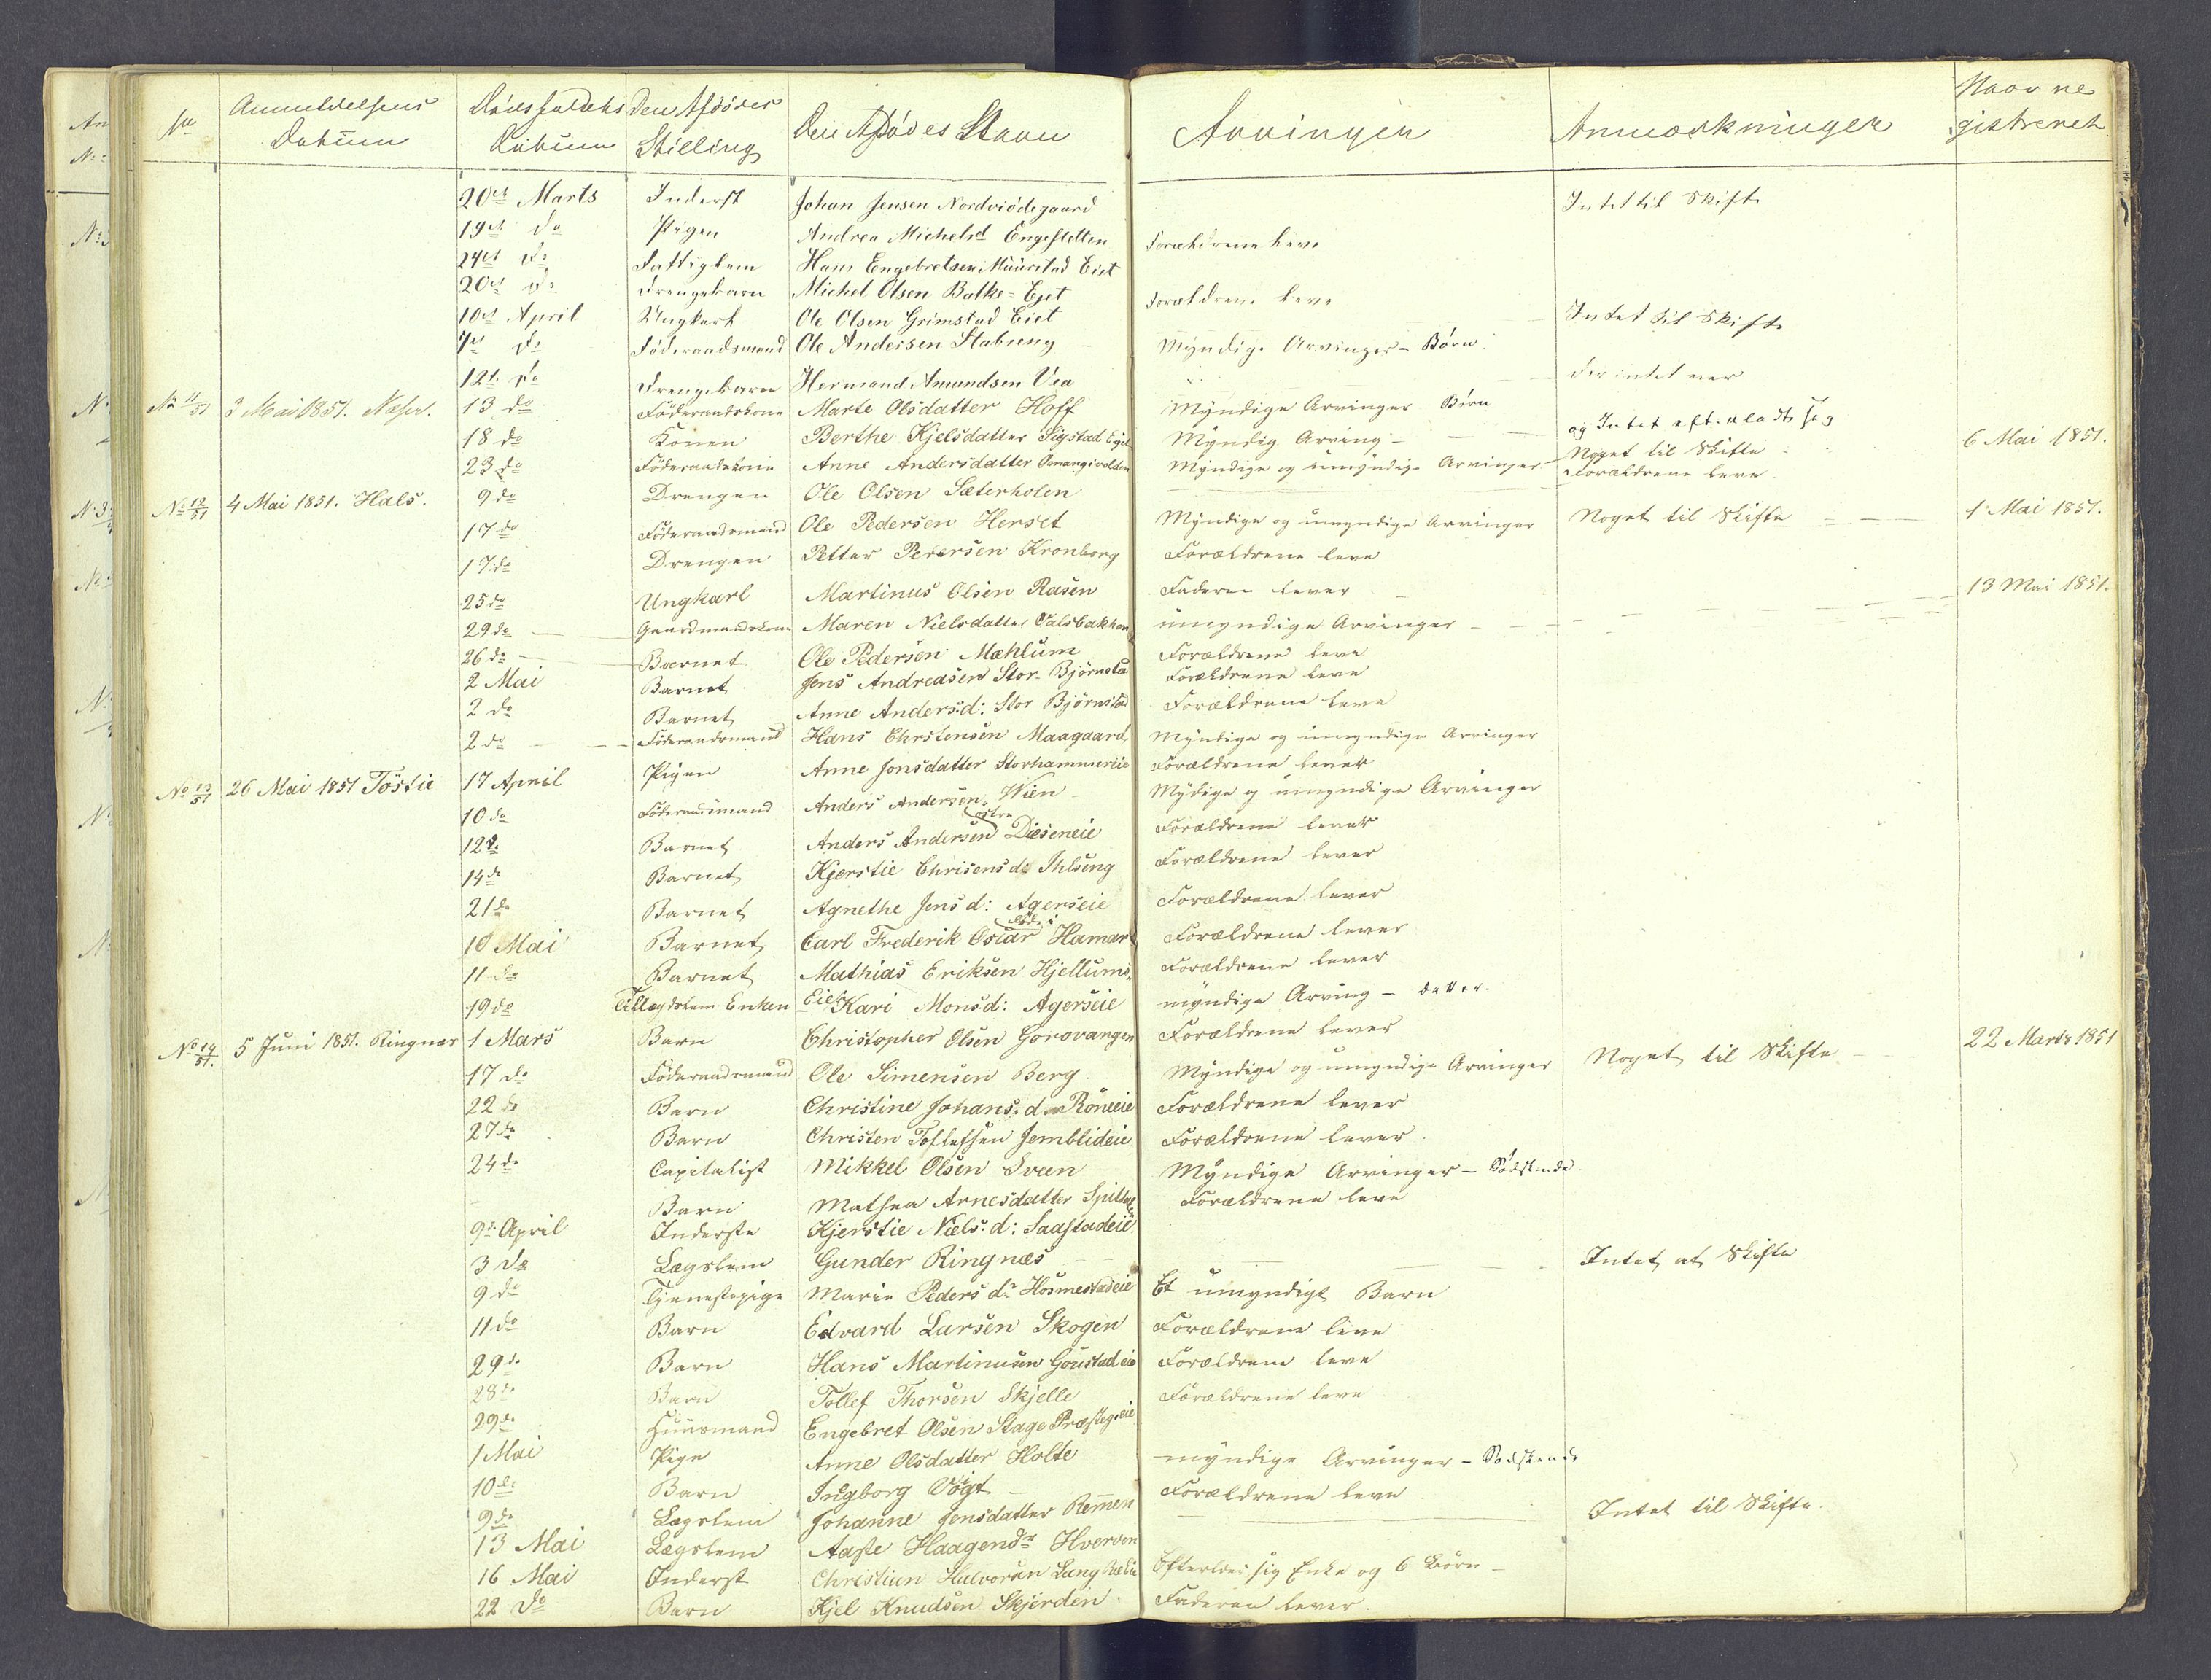 No Anmeldelsens Datum Dødsfaldets Datum Den Afdødes Stilling Den Afdødes Navn Arvinger Anmærkninger Naar registreret
20de Marts Inderst Johan Jensen Nordviödegaard Intet til Skifte
19de do Pigen Andrea Michelsd Engestetten Forældrene leve
24de do Fattiglem Hans Engebretsen Muurstad Eiet
20de do Drengebarn Michel Olsen Balke-Ejet Forældrene leve
10de April Ungkarl Ole Olsen Grimstad Eiet Intet til Skifte
7de do Föderaadsmand Ole Andersen Stabseng Myndige Arvinger - Börn
12te do Drengebarn Hermand Amundsen Vea der intet var
No 11/51 3 Mai 1851. Næser. 13 do Föderaadskone Marte Olsdatter Hoff Myndige Arvinger Börn
18 do Konen Berthe Kjelsdatter Sigstad Ejet Myndig Arving og Intet efterladt sig
23 do Föderaadskone Anne Andersdatter Myndige og umyndige Arvinger Noget til Skifte 6 Mai 1851.
No 12/51 4 Mai 1851. Hals. 9 do Drengen Ole Olsen Sæterholen Forældrene leve
17 do Föderaadsmand Ole Pedersen Herset Myndige og umyndige Arvinger Noget til Skifte 1 Mai 1851.
17 do Drengen Petter Pedersen Kronborg Forældrene leve
25 do Ungkarl Martinus Olsen Rasen Faderen lever
29 do Gaardmandskone Maren Nielsdatter Valsbakken umyndige Arvinger 13 Mai 1851.
26 do Barnet Ole Pedersen Mæhlum Forældrene leve
2 Mai Barnet Jens Andreasen Stor-Björnstad Forældrene leve
2 do Barnet Anne Andersd: Stor Björnstad Forældrene leve
2 do Föderaadsmand Hans Chrstensen Maagaard Myndige og umyndige Arvinger
No 13/51 26 Mai 1851 Töstie 17 April Pigen Anne Jonsdatter Storhammereie Forældrene lever
10 do Föderaadsmand Anders Andersen Wien Mydige og umyndige Arvinger
12 do Barnet Anders Andersen östre Diseneie Forældrene lever
14 do Barnet Kjerstie Chrisensd: Ihlseng Forældrene lever
21 do Barnet Agnethe Jens d: Agerseie Forældrene lever
10 Mai Barnet Carl Frederik Oscar död i Hamar Forældrene lever
11 do Barnet Mathias Eriksen Hjellums- Eie Forældrene lever
19 do Tillægdslem Enken Kari Monsd: Agerseie myndige Arving - datter.
No 14/51. 5 Juni 1851. Ringnæs 1 Mars Barn Christopher Olsen Gorovangen Forældrene lever
17 do Föderaadsmand Ole Simensen Berg. Myndige og umyndige Arvinger Noget til Skifte 22 Marts 1851
22 do Barn Christine Johans. d. Röneeie Forældrene lever
27 do Barn Christen Tollefsen Jemblideie Forældrene lever.
24 do Capitalist Mikkel Olsen Sveen Myndige Arvinger - Södskende
Barn Mathea Arnesdatter Forældrene leve
9de April Inderste Kjerstie Niels. d: Saastadeie
3 do Lægslem Gunder Ringnæs Intet at Skifte
9 do Tjenestepige Marie Peders dr Hosmestadeie Et umyndigt Barn
11 do Barn Edvard Larsen Skogen Forældrene leve
29 do Barn Hans Martinusen Goustadeie Forældrene leve
28 do Barn Tollef Thorsen Skjelle Forældrene leve
29 do Huusmand Engebret Olsen Stage Præstegeie
1 Mai Pige Anne Olsdatter Holte myndige Arvinger - Södskende
10 do Barn Ingborg Vogt Forældrene leve
9 do Lægslem Johanne Jensdatter Remen Intet til Skifte.
13 Mai Lægslem Aaste Haagendr Hverven
16 Mai Inderst Christian Halvorsen Efterlod sig Enke og 6 Börn
22 do Barn Kjel Knudsen Skjerden Faderen lever.